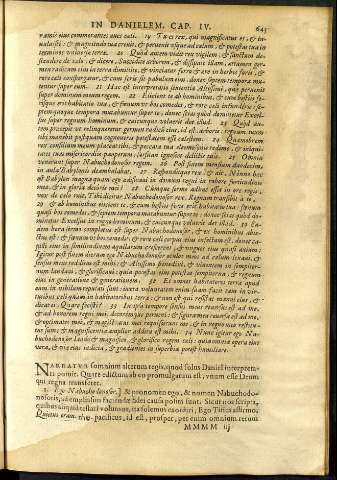 IN DANIELEM. CAP. IV. 643
ramis eius commorantes aues cœli. 19 Tu es rex, qui magnificatus es, & in-
ualuisti: & magnitudo tua creuit, & peruenit usque ad cœlum, & potestas tua in
terminos uniuersæ terræ. 20 Quòd autem uidit rex uigilem, & sanctum de-
scendere de cœlo, & dicere, Succidite arborem, & dissipate illam, attamen ger-
men radicum eius in terra dimittite, & uinciatur ferro & ære in herbis foris, &
rore cœli conspergatur, & cum feris sit pabulum eius, donec septem tempora mu-
tentur super eum. 21 Hæc est interpretatio sententiæ Altissimi, quæ peruenit
super dominum meum regem. 22 Eiicient te ab hominibus, & cum bestiis fe-
risque erit habitatio tua, & fœnum ut bos comedes, & rore cœli infunderis: se-
ptem quoque tempora mutabuntur super te, donec scias quòd dominetur Excel-
sus super regnum hominum, & cuicunque uoluerit det illud. 23 Quòd au-
tem præcepit ut relinqueretur germen radicis eius, id est arboris: regnum tuum
tibi manebit postquam cognoueris potestatem esse cœlestem. 24 Quamobrem
rex consilium meum placeat tibi, & peccata tua eleemosynis redime, & iniqui-
tates tuas misericordiis pauperum, forsitan ignoscet delictis tuis. 25 Omnia
uenerunt super Nabuchodonosor regem. 26 Post finem mensium duodecim,
in aula Babylonis deambulabat. 27 Responditque rex, & ait, Nonne hæc
est Babylon magna quam ego ædificaui in domum regni in robore fortitudinis
meæ, & in gloria decoris mei? 28 Cúmque sermo adhuc esset in ore regis,
uox de cœlo ruit, Tibi dicitur Nabuchodonosor rex, Regnum transibit à te,
29 & ab hominibus eiicient te, & cum bestiis feris erit habitatio tua: fœnum
quasi bos comedes, & septem tempora mutabuntur super te, donec scias quòd do-
minetur Excelsus in regno hominum, & cuicunque uoluerit det illud. 30 Ea-
dem hora sermo completus est super Nabuchodonosor, & ex hominibus abie-
ctus est, & fœnum ut bos comedit, & rore cœli corpus eius infectum est, donec ca-
pilli eius in similitudinem aquilarum crescerent, & ungues eius quasi auium:
Igitur post finem dierum ego Nabuchodonosor oculos meos ad cœlum leuaui, &
sensus meus redditus est mihi: & Altissimo benedixi, & uiuentem in sempiter-
num laudaui, & glorificaui: quia potestas eius potestas sempiterna, & regnum
eius in generatione & generationem. 32 Et omnes habitatores terræ apud
eum in nihilum reputati sunt: iuxta uoluntatem enim suam facit tam in uir-
tutibus cœli quàm in habitatoribus terræ: & non est qui resistat manui eius, &
dicat ei, Quare fecisti? 33 In ipso tempore sensus meus reuersus est ad me,
& ad honorem regni mei, decoremque perueni: & figura mea reuersa est ad me,
& optimates mei, & magistratus mei requisierunt me, & in regno meo restitu-
tus sum: & magnificentia amplior addita est mihi. 34 Nunc igitur ego Na-
buchodonosor laudo & magnifico, & glorifico regem cœli: quia omnia opera eius
uera, & uiæ eius iudicia, & gradientes in superbia potest humiliare.
NARRATVR somnium alterum regis, quod solus Daniel interpreta-
ri potuit. Quare edictum ab eo promulgatum est, vnum esse Deum
qui regna transferret.
1. Ego Nabuchodonosor.] & pronomen ego, & nomen Nabuchodo-
nosoris, ad emphasim faciendæ fidei causa posita sunt. Sicut nos scripta,
quibus aliquid testari volumus, ita solemus exordiri, Ego Titius affirmo.
Quietus eram. pacificus, id est, prosper, per enim omnium rerum
MMMM iij